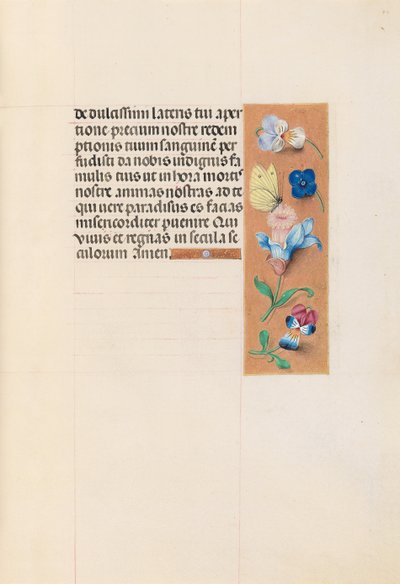 de dulcissimi lateris tui aper
tione precium nostre redem
ptionis tuum sanguinē per
fudisti da nobis indignis fa
mulis tuis ut in hora mortis
nostre animas nostras ad te
qui vere paradisus es facias
misericorditer pvenire Qui
vivis et regnas in secula se
culorum amen